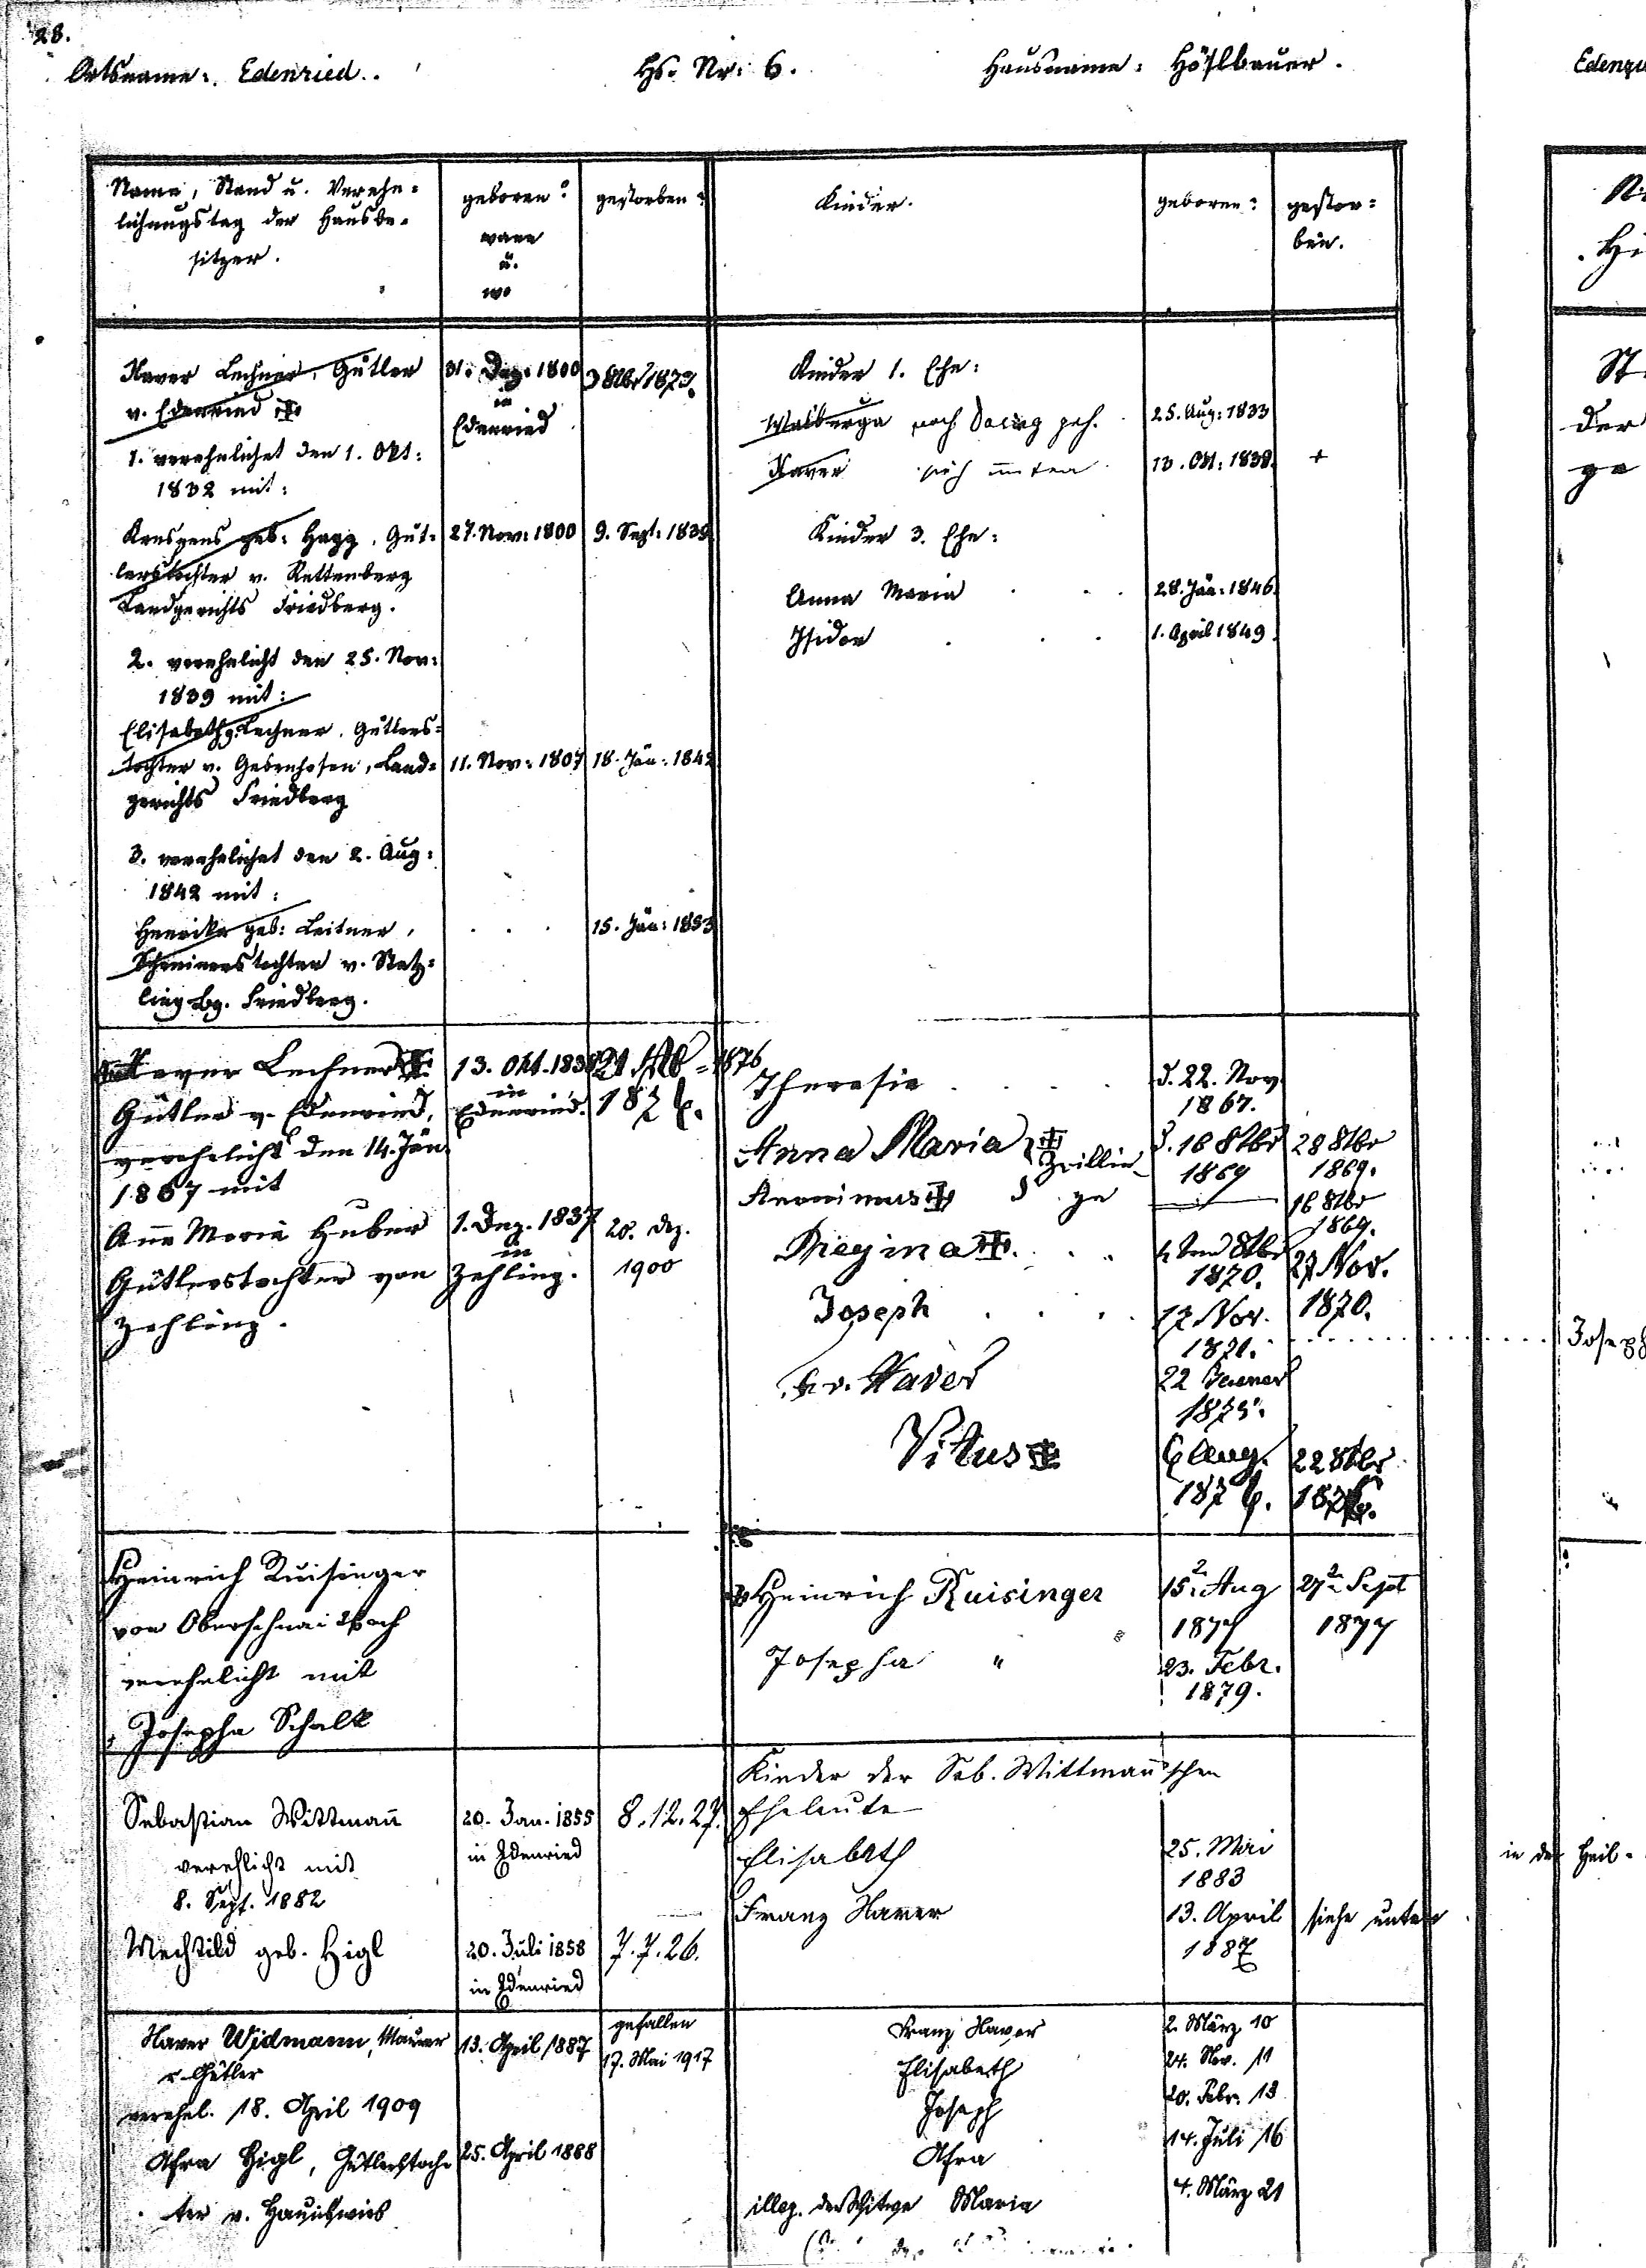 28.
Ortsname: Edenried. Hs. Nr: 6. Hausname: Höslbauer.
Name, Stand u. Verehe=
lichungstag der Hausbe=
sitzer.
geboren:
wann
u.
wo
gestorben:
Kinder.
geboren:
gestor=
ben.
Xaver Lechner, Gütler
v. Edenried
31. Dez. 1800
in
Edenried
1. verehelichet den 1. Okt:
1832 mit:
Kreszens geb: Hagg, Güt=
lerstochter v. Rettenberg
Landgerichts Friedberg.
27. Nov: 1800
9. Sept: 1839
2. verehelicht den 25. Nov:
1839 mit:
Elisabeth g. Lechner, Gütlers=
tochter v. Gebenhofen, Land=
gerichts Friedberg
11. Nov: 1807
18. Jän: 1842
3. verehelichet den 2. Aug:
1842 mit:
Henrika geb: Leitner,
Schreinerstochter v. Statz=
ling Lg. Friedberg.
15. Jän: 1853
Kinder 1. Ehe:
Walburga nach Dasing geh. 25. Aug: 1833
Xaver sieh unten 13. Okt: 1838. +
Kinder 3. Ehe:
Anna Maria 28. Jän: 1846.
Isidor 1. April 1849.
Xaver Lechner
Gütler v. Edenried,
verehelicht den 14. Jän
1867 mit
13. Okt. 1838
in
Edenried.
1876
Anna Maria Huber
Gütlerstochter von
Zahling.
1. Dez. 1837
in
Zahling.
20. Dez.
1900
Theresia d. 22. Nov
1867.
Anna Maria Zwillin-
d. 16 8tbr
1869
28 8tbr
1869.
ge
16 8tbr
1869.
Regina 8tbr
1870.
27 Nov.
1870.
Joseph 17 Nov.
1871.
Xaver 22 Jänner
Vitus 6 Aug.
1876.
22 8tbr
Heinrich Ruisinger
von Oberschnaitbach
verehelicht mit
Josepha Schalk
Heinrich Ruisinger 15. Aug 27. Sept
1877 1877
Josepha " 23. Febr.
1879.
Sebastian Wittmann
verehlicht mit
8. Sept. 1882
20. Jan. 1855
in Edenried
8.12.27.
Mechtild geb. Higl
20. Juli 1858
in Edenried
7.7.26.
Kinder der Seb. Wittmann'schen
Eheleute
Elisabeth 25. Mai
1883
Franz Xaver 13. April siehe unten
1887
Xaver Widmann, Maurer
u. Gütler
13. April 1887
gefallen
17. Mai 1917
verehel. 18. April 1909
Afra Higl, Gütlerstoch-
ter v.
25. April 1888
Franz Xaver 2. März 10
Elisabeth 24. Nov. 11
Joseph 20. Febr. 13
Afra 14. Juli 16
illeg. der Witwe Maria 4. März 21
Joseph
in der Heil.